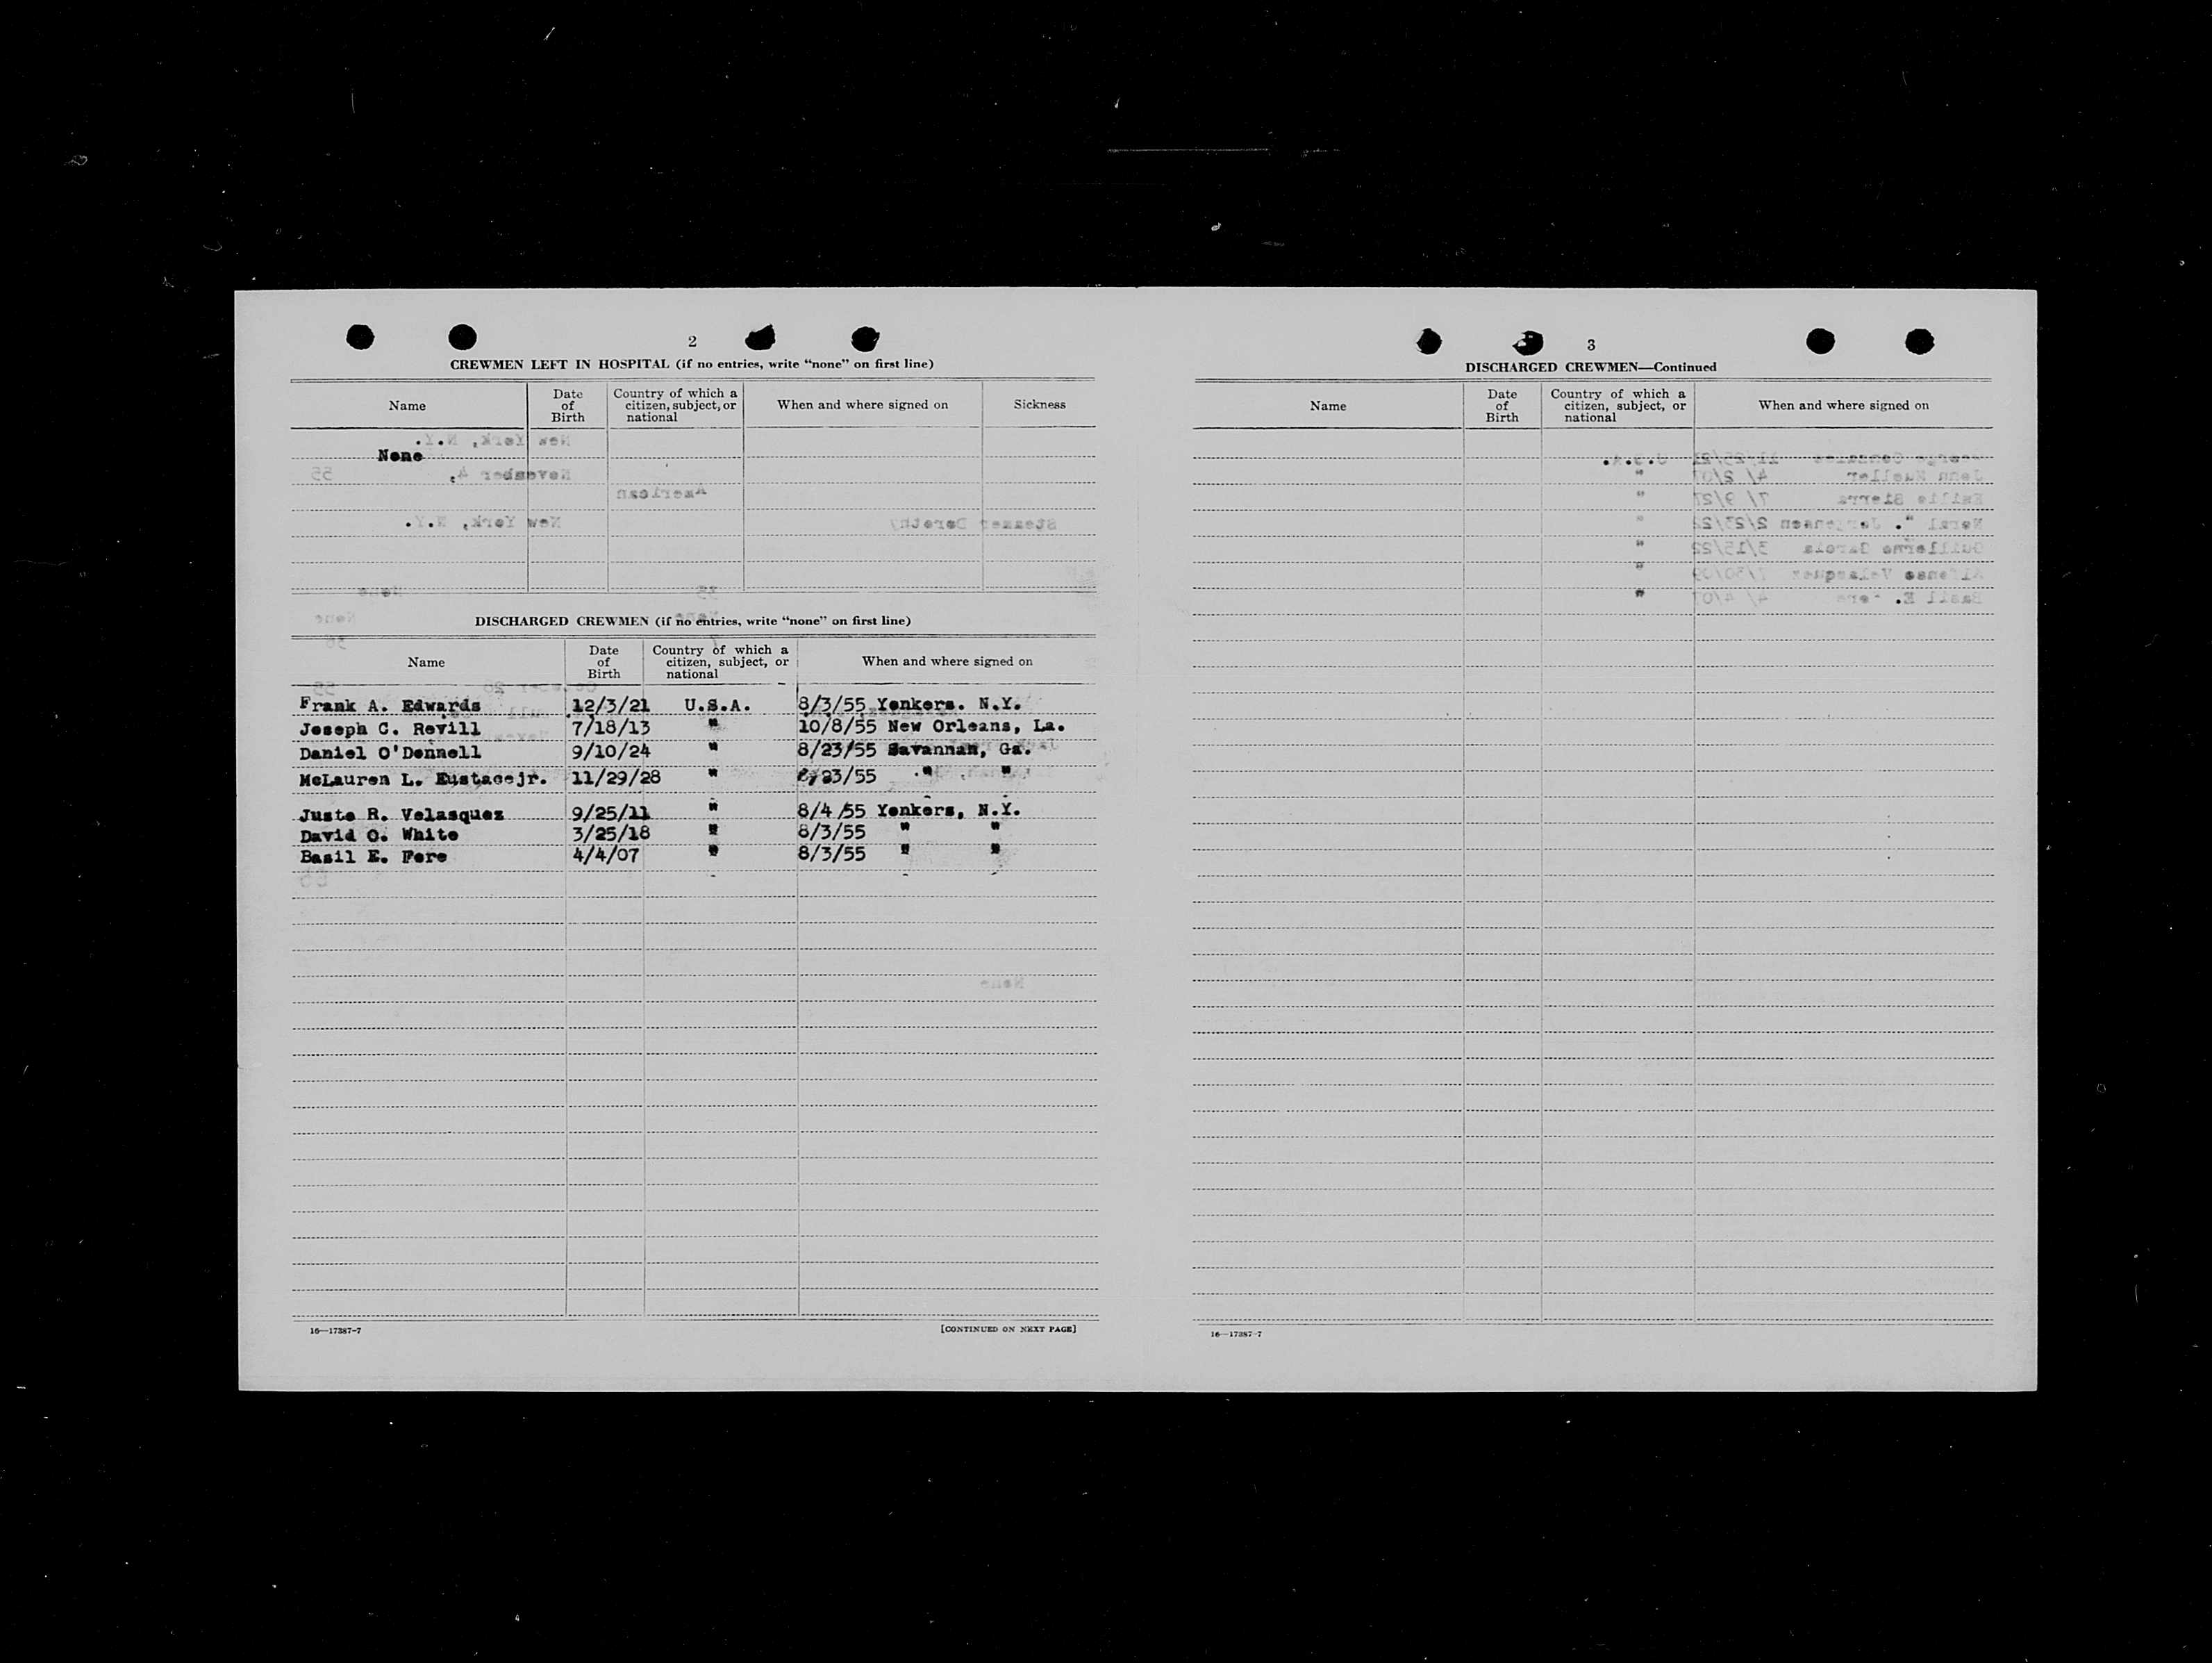 2
CREWMEN LEFT IN HOSPITAL (if no entries, write “none” on first line)
Name Date of Birth Country of which a citizen, subject, or national When and where signed on Sickness
None
DISCHARGED CREWMEN (if no entries, write “none” on first line)
Name Date of Birth Country of which a citizen, subject, or national When and where signed on
Frank A. Edwards 12/3/21 U.S.A. 8/3/55 Yonkers. N.Y.
Joseph C. Revill 7/18/13 " 10/8/55 New Orleans, La.
Daniel O'Donnell 9/10/24 " 8/23/55 Savannah, Ga.
McLauren L. Eustace jr. 11/29/28 " /23/55 " "
Juste R. Velasquez 9/25/11 " 8/4/55 Yonkers, N.Y.
David O. White 3/25/18 " 8/3/55 " "
Basil E. Fore 4/4/07 " 8/3/55 " "
16—17387-7 [CONTINUED ON NEXT PAGE]
3
DISCHARGED CREWMEN—Continued
Name Date of Birth Country of which a citizen, subject, or national When and where signed on
16—17387-7